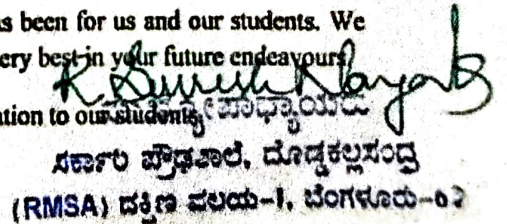 as been for us and our students. We
ery best in your future endeavours
K. Suresh Nayak
ation to our students.
ಮುಖ್ಯೋಪಾಧ್ಯಾಯರು
ಸರ್ಕಾರಿ ಪ್ರೌಢಶಾಲೆ, ದೊಡ್ಡಕಲ್ಲಸಂದ್ರ
(RMSA) ದಕ್ಷಿಣ ವಲಯ-1, ಬೆಂಗಳೂರು-62